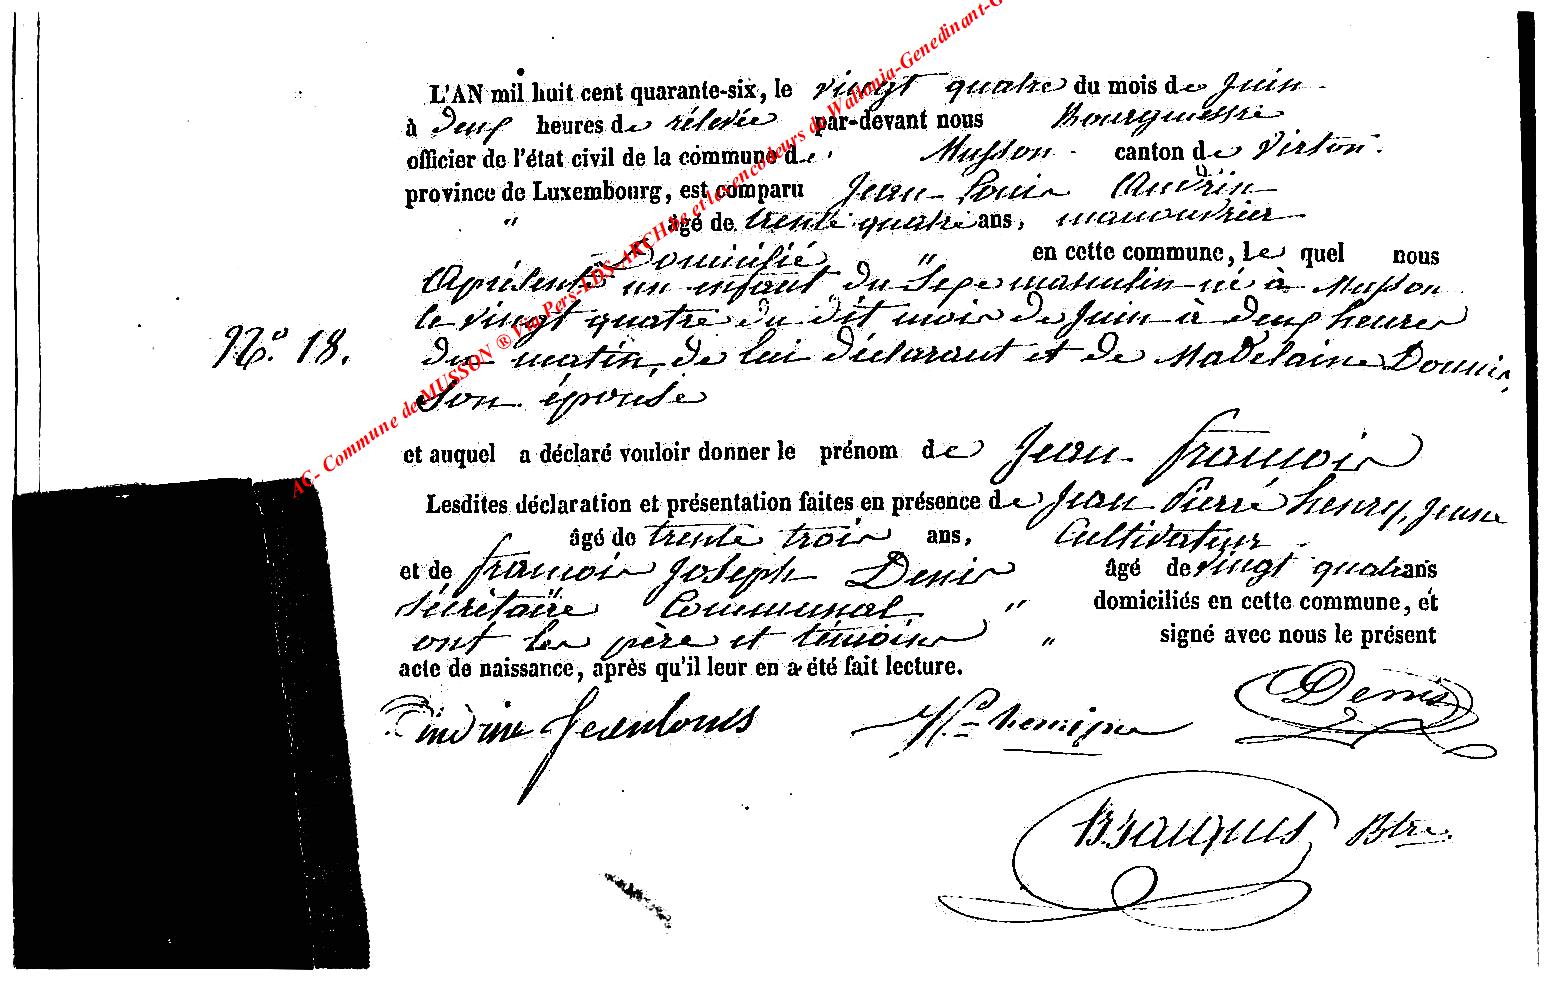 L'AN mil huit cent quarante-six, le vingt quatre du mois de Juin
à deux heures de rélevée par-devant nous Bourgmestre
officier de l'état civil de la commune de Musson canton de Virton.
province de Luxembourg, est comparu Jean Louis Andrin
" âgé de trente quatre ans, manouvrier
Domicilié " en cette commune, le quel nous
a présenté un enfant du Sexe masculin né à Musson
le vingt quatre du dit mois de Juin à deux heures
N.° 18. du matin, de lui déclarant et de Madelaine
son épouse
et auquel a déclaré vouloir donner le prénom de Jean francois
Lesdites déclaration et présentation faites en présence de Jean Pierre henry, Jeune
âgé de trente trois ans, Cultivateur
et de francois Joseph Denis âgé de vingt quatre ans
sécrétaire Communal " domiciliés en cette commune, et
ont les père et témoins " signé avec nous le présent
acte de naissance, après qu'il leur en a été fait lecture.
Jeanlouis Denis
Btre.
AC- Commune de MUSSON ® Via Pers-LDS-ARCH be et les encodeurs de Wallonia-Genedinant-G